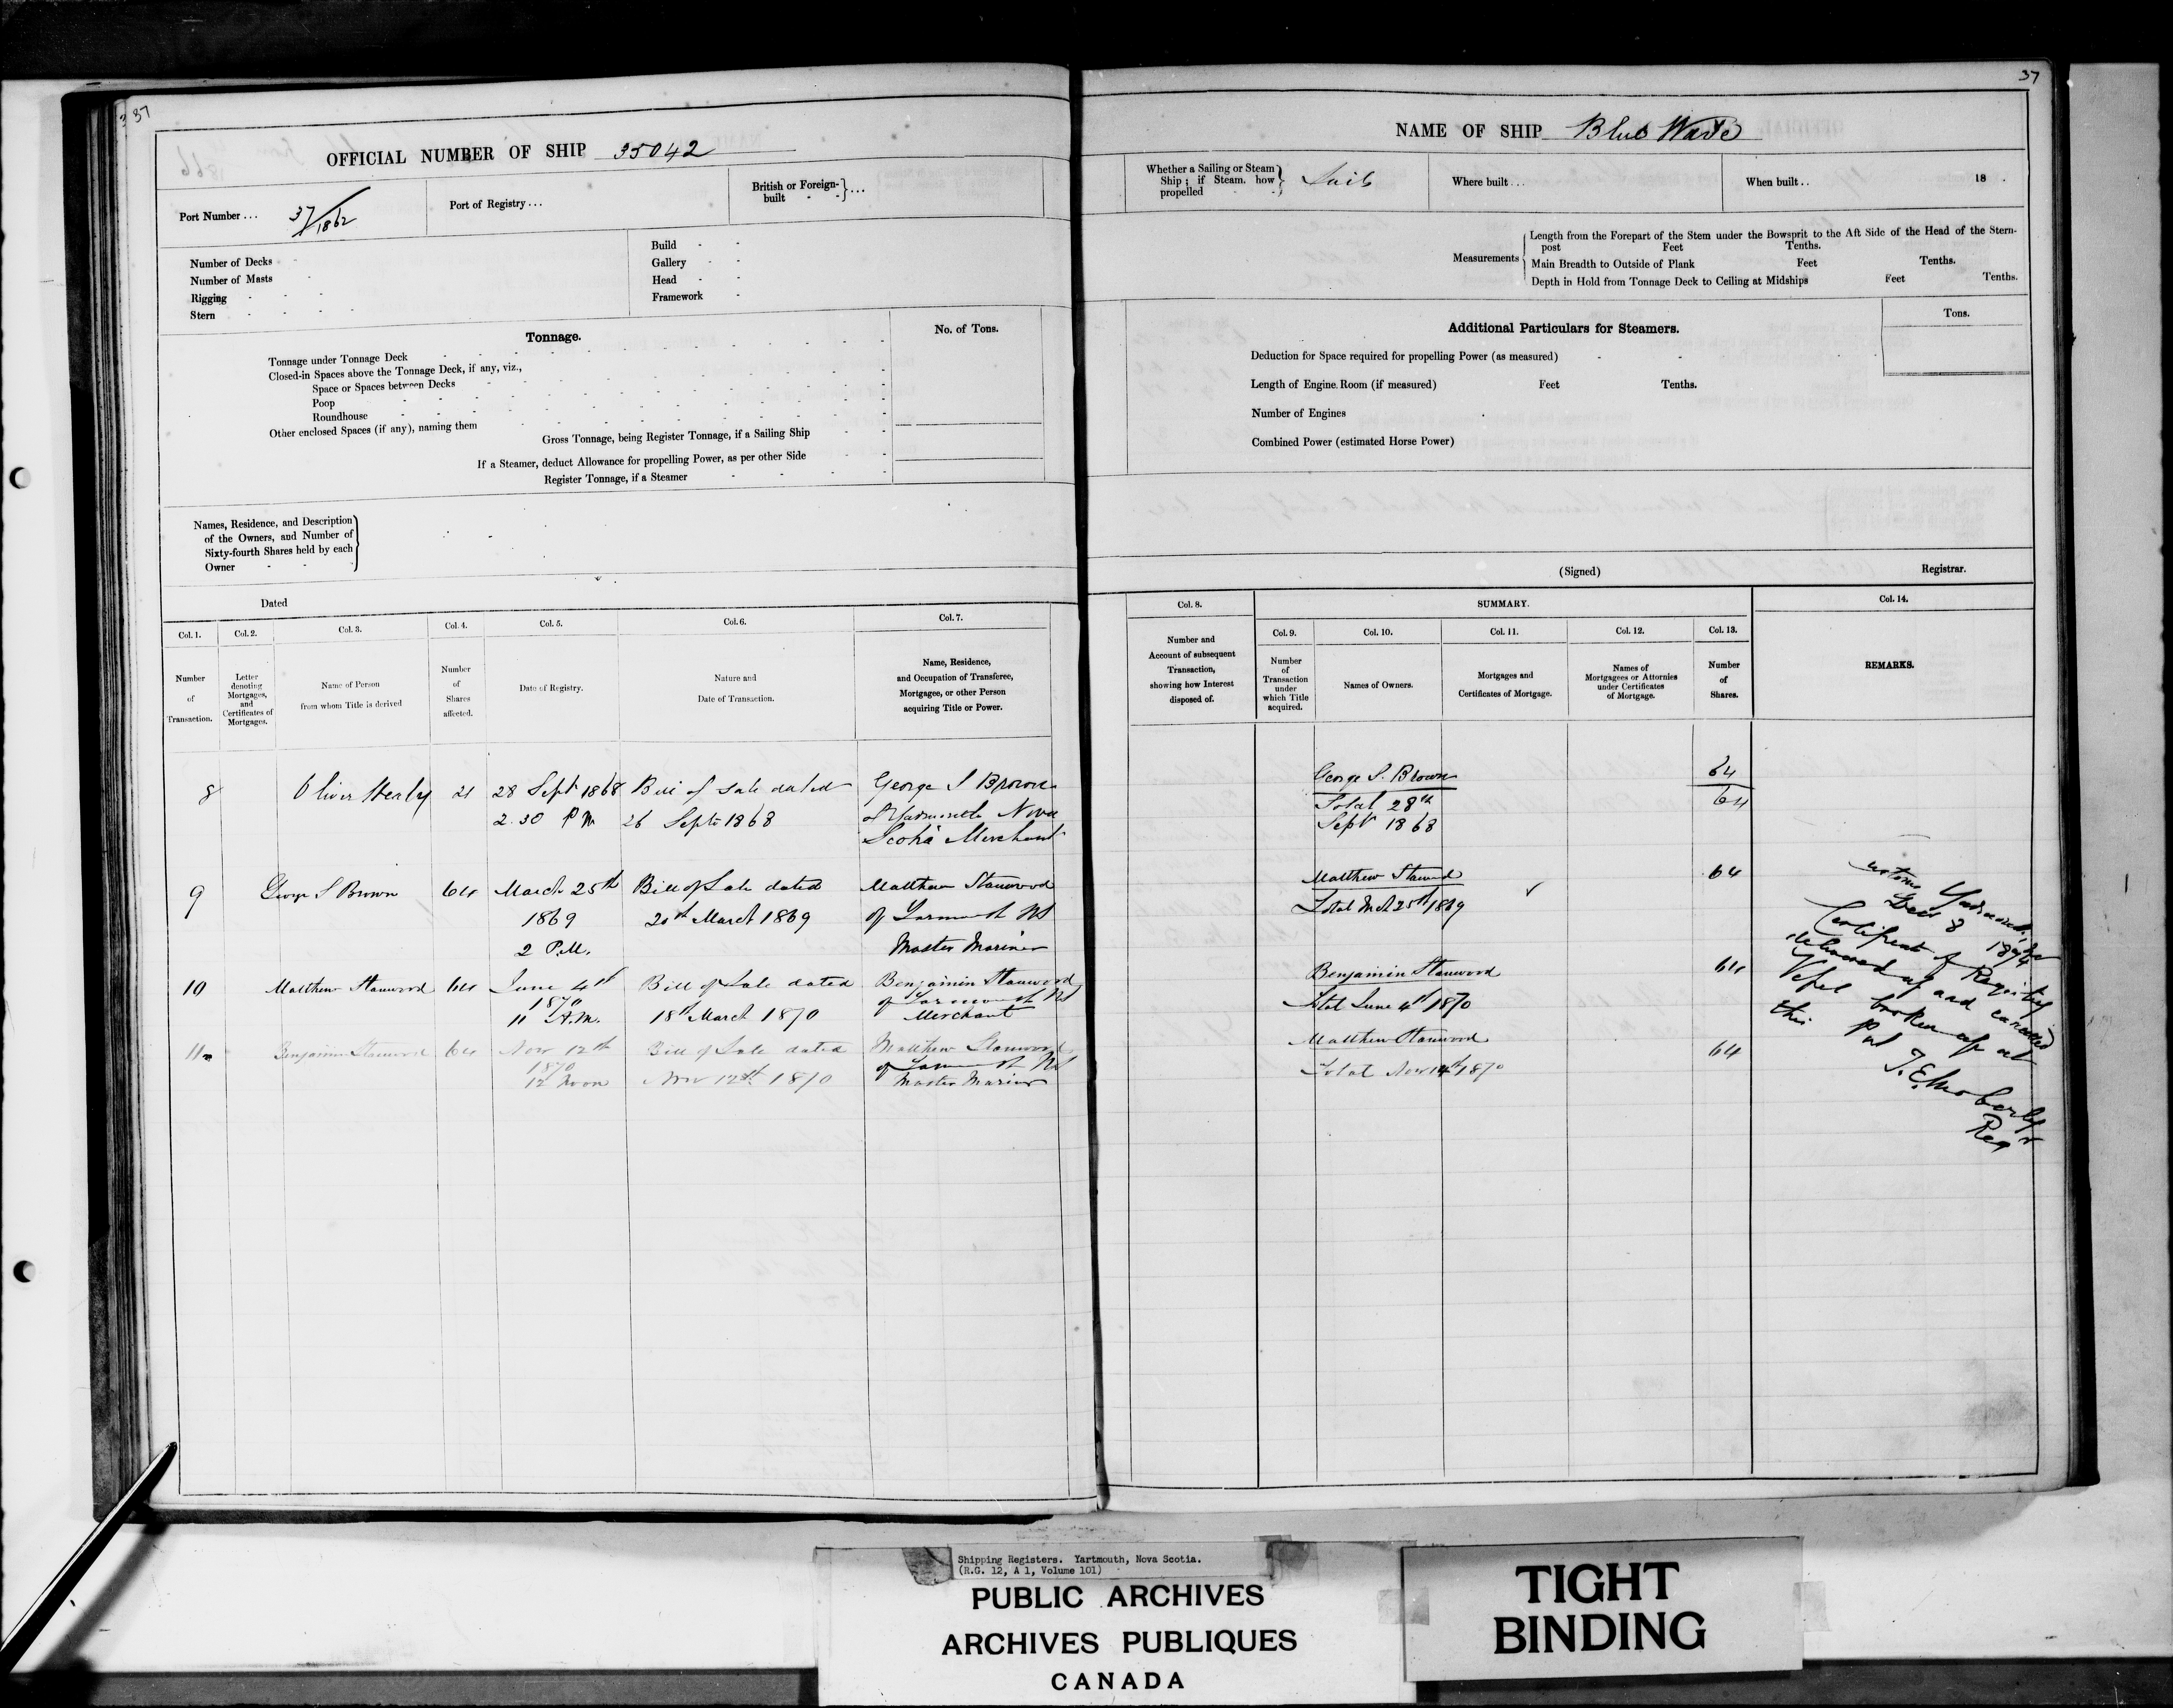 37
OFFICIAL NUMBER OF SHIP 35042
Port Number ... 37/1862
Port of Registry ...
British or Foreign-built - - } ...
Number of Decks -
Number of Masts -
Rigging - - -
Stern - - - -
Build - -
Gallery - -
Head - -
Framework -
Tonnage.
No. of Tons.
Tonnage under Tonnage Deck
Closed-in Spaces above the Tonnage Deck, if any, viz.,
Space or Spaces between Decks
Poop
Roundhouse
Other enclosed Spaces (if any), naming them
Gross Tonnage, being Register Tonnage, if a Sailing Ship
If a Steamer, deduct Allowance for propelling Power, as per other Side
Register Tonnage, if a Steamer
Names, Residence, and Description
of the Owners, and Number of
Sixty-fourth Shares held by each
Owner - - -
Dated
Col. 1. Col. 2. Col. 3. Col. 4. Col. 5. Col. 6. Col. 7.
Number of Transaction.
Letter denoting Mortgages, and Certificates of Mortgages.
Name of Person from whom Title is derived
Number of Shares affected.
Date of Registry.
Nature and Date of Transaction.
Name, Residence, and Occupation of Transferee, Mortgagee, or other Person acquiring Title or Power.
8 Oliver Healy 21 28 Sept 1868 Bill of Sale dated George S Brown
2.30 PM 26 Sept 1868 of Yarmouth Nova
Scotia Merchant
9 George S Brown 64 March 25th Bill of Sale dated Matthew Stanwood
1869 20th March 1869 of Yarmouth NS
2 P.M. Master Mariner
10 Matthew Stanwood 64 June 4th Bill of Sale dated Benjamin Stanwood
1870 of Yarmouth NS
11 A.M. 18th March 1870 Merchant
11 Benjamin Stanwood 64 Nov 12th Bill of Sale dated Matthew Stanwood
1870 of Yarmouth NS
12 Noon Nov 12th 1870 Master Mariner
37
NAME OF SHIP Blue Wave
Whether a Sailing or Steam
Ship; if Steam. how
propelled - - } Sails
Where built ...
When built .. 18 .
Measurements
Length from the Forepart of the Stem under the Bowsprit to the Aft Side of the Head of the Stern-
post Feet Tenths.
Main Breadth to Outside of Plank Feet Tenths.
Depth in Hold from Tonnage Deck to Ceiling at Midships Feet Tenths.
Additional Particulars for Steamers.
Tons.
Deduction for Space required for propelling Power (as measured) - -
Length of Engine Room (if measured) Feet Tenths.
Number of Engines
Combined Power (estimated Horse Power)
(Signed) Registrar.
Col. 8. SUMMARY. Col. 14.
Col. 9. Col. 10. Col. 11. Col. 12. Col. 13.
Number and Account of subsequent Transaction, showing how Interest disposed of.
Number of Transaction under which Title acquired.
Names of Owners.
Mortgages and Certificates of Mortgage.
Names of Mortgagees or Attornies under Certificates of Mortgage.
Number of Shares.
REMARKS.
George S. Brown 64
Total 28th 64
Sept 1868
Matthew Stanwd 64
Total Mch 25th 1869
Benjamin Stanwood 64
Total June 4th 1870
Matthew Stanwood 64
Total Nov 14th 1870
Customs Yarmouth
Decr 8
Certificate of Registry
delivered up and cancelled
Vessel broken up at
this Port
T.E. Moberly
Regr
Shipping Registers. Yartmouth, Nova Scotia.
(R.G. 12, A 1, Volume 101)
PUBLIC ARCHIVES
ARCHIVES PUBLIQUES
CANADA
TIGHT
BINDING